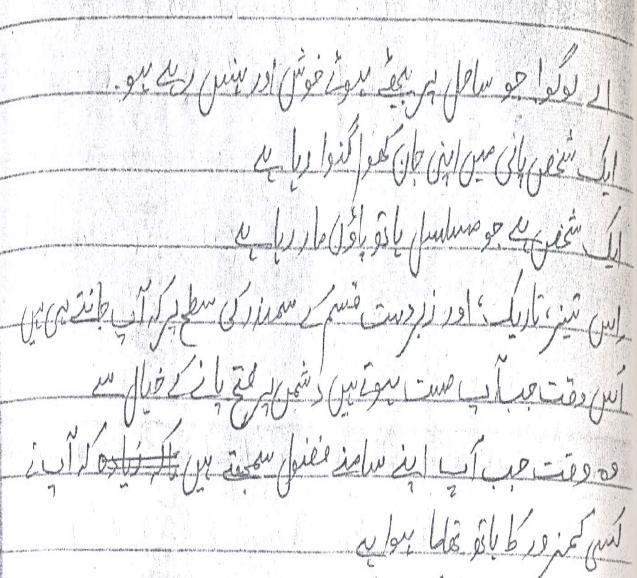 اے لوگوا جو ساحل پر بیٹھے ہوئے خوش اور ہنس رہے ہو.
ایک شخص پانی میں اپنی جان کھو/گنوا رہا ہے
ایک شخص ہے جو مسلسل ہاتھ پاؤں مار رہا ہے
اِس تیز، تاریک، اور زبردست قسم کے سمندر کی سطح پر کہ آپ جانتے ہی ہیں
اُس وقت جب آپ مست ہوتے ہیں دشمن پر فتح پانے کے خیال سے
وہ وقت جب آپ اپنے سامنے فضول سمجھتے ہیں کہ آپ نے
کسی کمزور کا ہاتھ تھاما ہوا ہے